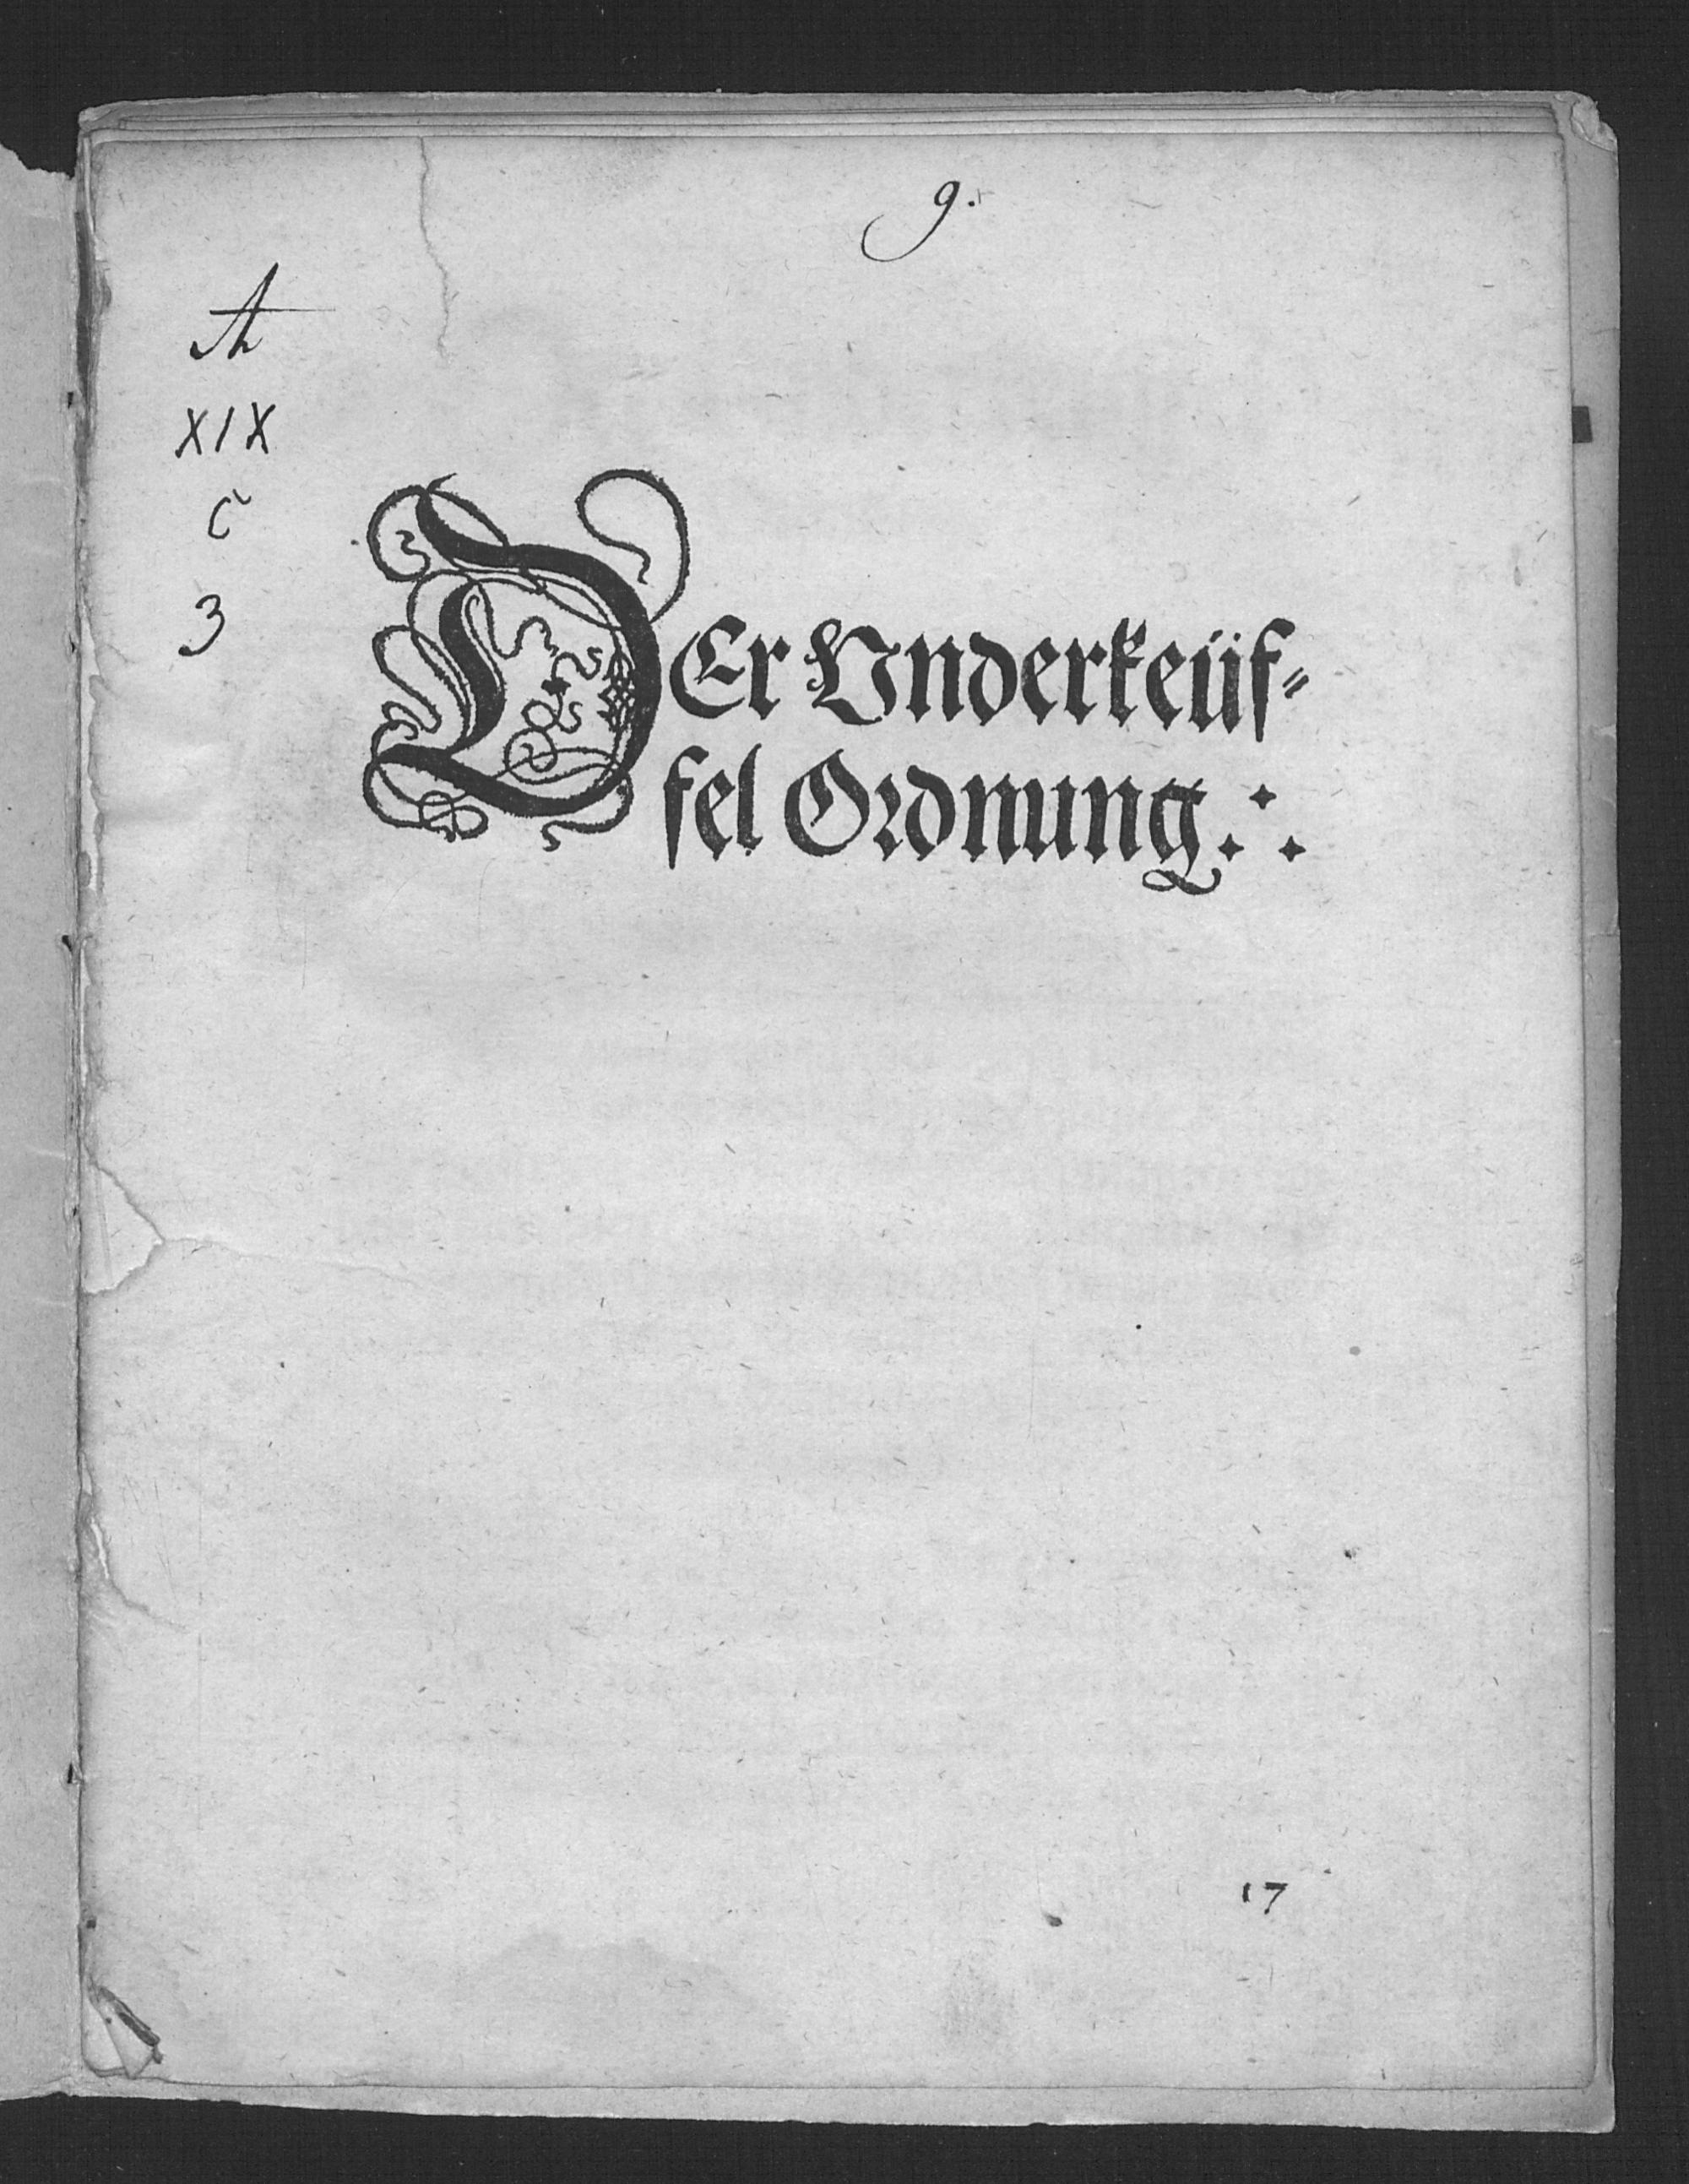 9.
A
XIX
C
3
DEr Vnderkeüf⸗
fel Ordnung. ∴
17